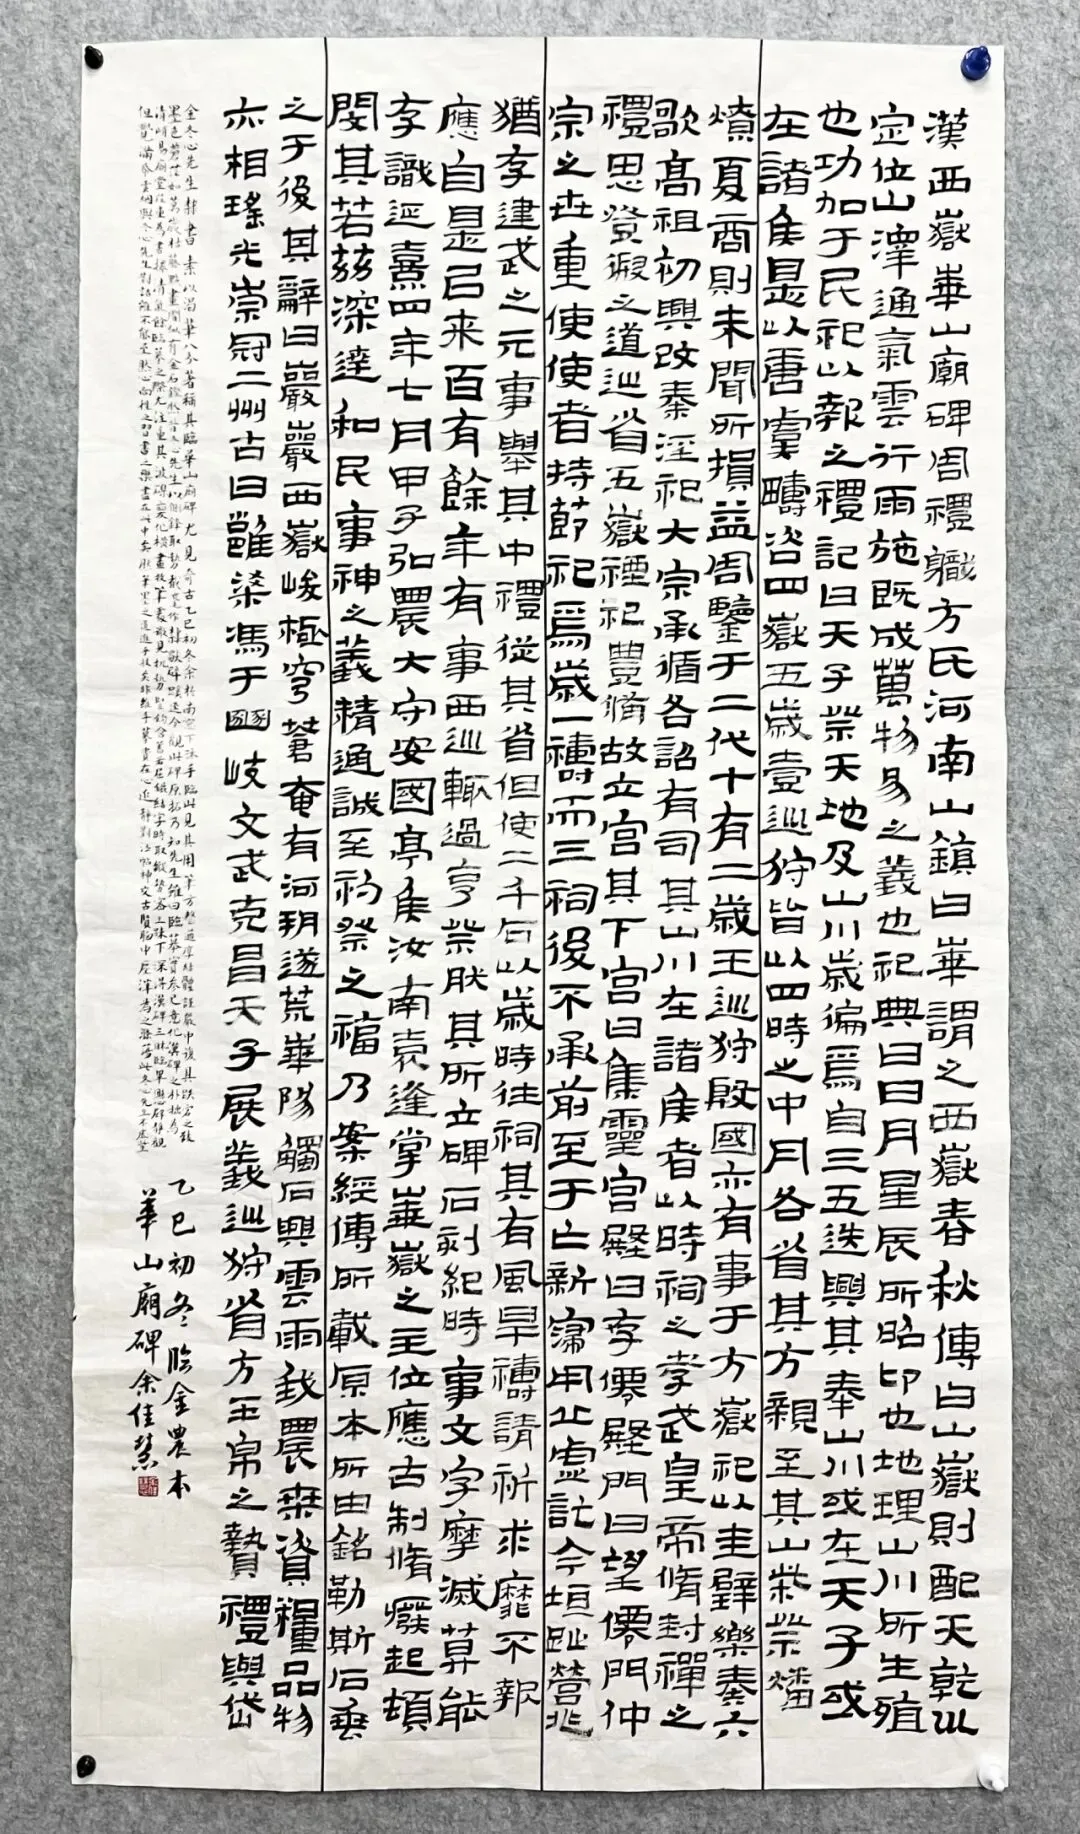 漢西嶽華山廟碑周禮職方氏河南山鎮曰華謂之西嶽春秋傳曰山嶽則配天乾巛
定位山澤通氣雲行雨施既成萬物易之義也祀典曰日月星辰所昭卬也地理山川所生殖
也功加于民祀以報之禮記曰天子祭天地及山川歲徧焉自三五迭興其奉山川或在天子或
在諸侯是以唐虞疇咨四嶽五歲壹巡狩皆以四時之中月各省其方親至其山柴祭燔
燎夏商則未聞所損益周鑒于二代十有二歲王巡狩殷國亦有事于方嶽祀以圭璧樂奏六
歌高祖初興改秦淫祀大宗承循各詔有司其山川在諸侯者以時祠之孝武皇帝脩封禪之
禮思登徦之道巡省五嶽禋祀豐備故立宮其下宮曰集靈宮殿曰存僊殿門曰望僊門仲
宗之世重使使者持節祀焉歲一禱而三祠後不承前至于亡新寖用丘虛訖今垣趾營兆
猶存建武之元事舉其中禮從其省但使二千石以歲時往祠其有風旱禱請祈求靡不報
應自是以来百有餘年有事西巡輒過亨祭然其所立碑石刻紀時事文字摩滅莫能
存識延熹四年七月甲子弘農大守安國亭侯汝南袁逢掌華嶽之主位應古制脩癈起頓
閔其若茲深達和民事神之義精通誠至礿祭之福乃案經傳所載原本所由銘勒斯石垂
之于後其辭曰巖巖西嶽峻極穹蒼奄有河朔遂荒華陽觸石興雲雨我農桑資糧品物
亦相瑤光崇冠二州古曰雝梁馮于豳岐文武克昌天子展義巡狩省方玉帛之贄禮與岱
金冬心先生隸書素以渴筆八分著稱其臨華山廟碑尤見奇古乙巳初冬余於南窗下臨此見其用筆方整遒厚結體謹嚴中復具跌宕之致
墨色蒼茫如萬歲枯藤點畫間似有金石
乙巳初冬臨金農本
華山廟碑余佳慧